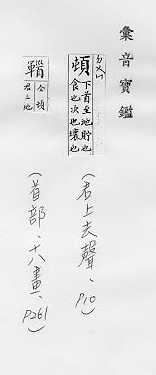 彙音寶鑑
ㄉㄨㄣ
頓 下首至地貯也
食也次也壞也
(君上去聲、P10)
仝頓
君上地
(首部、十八畫、P261)